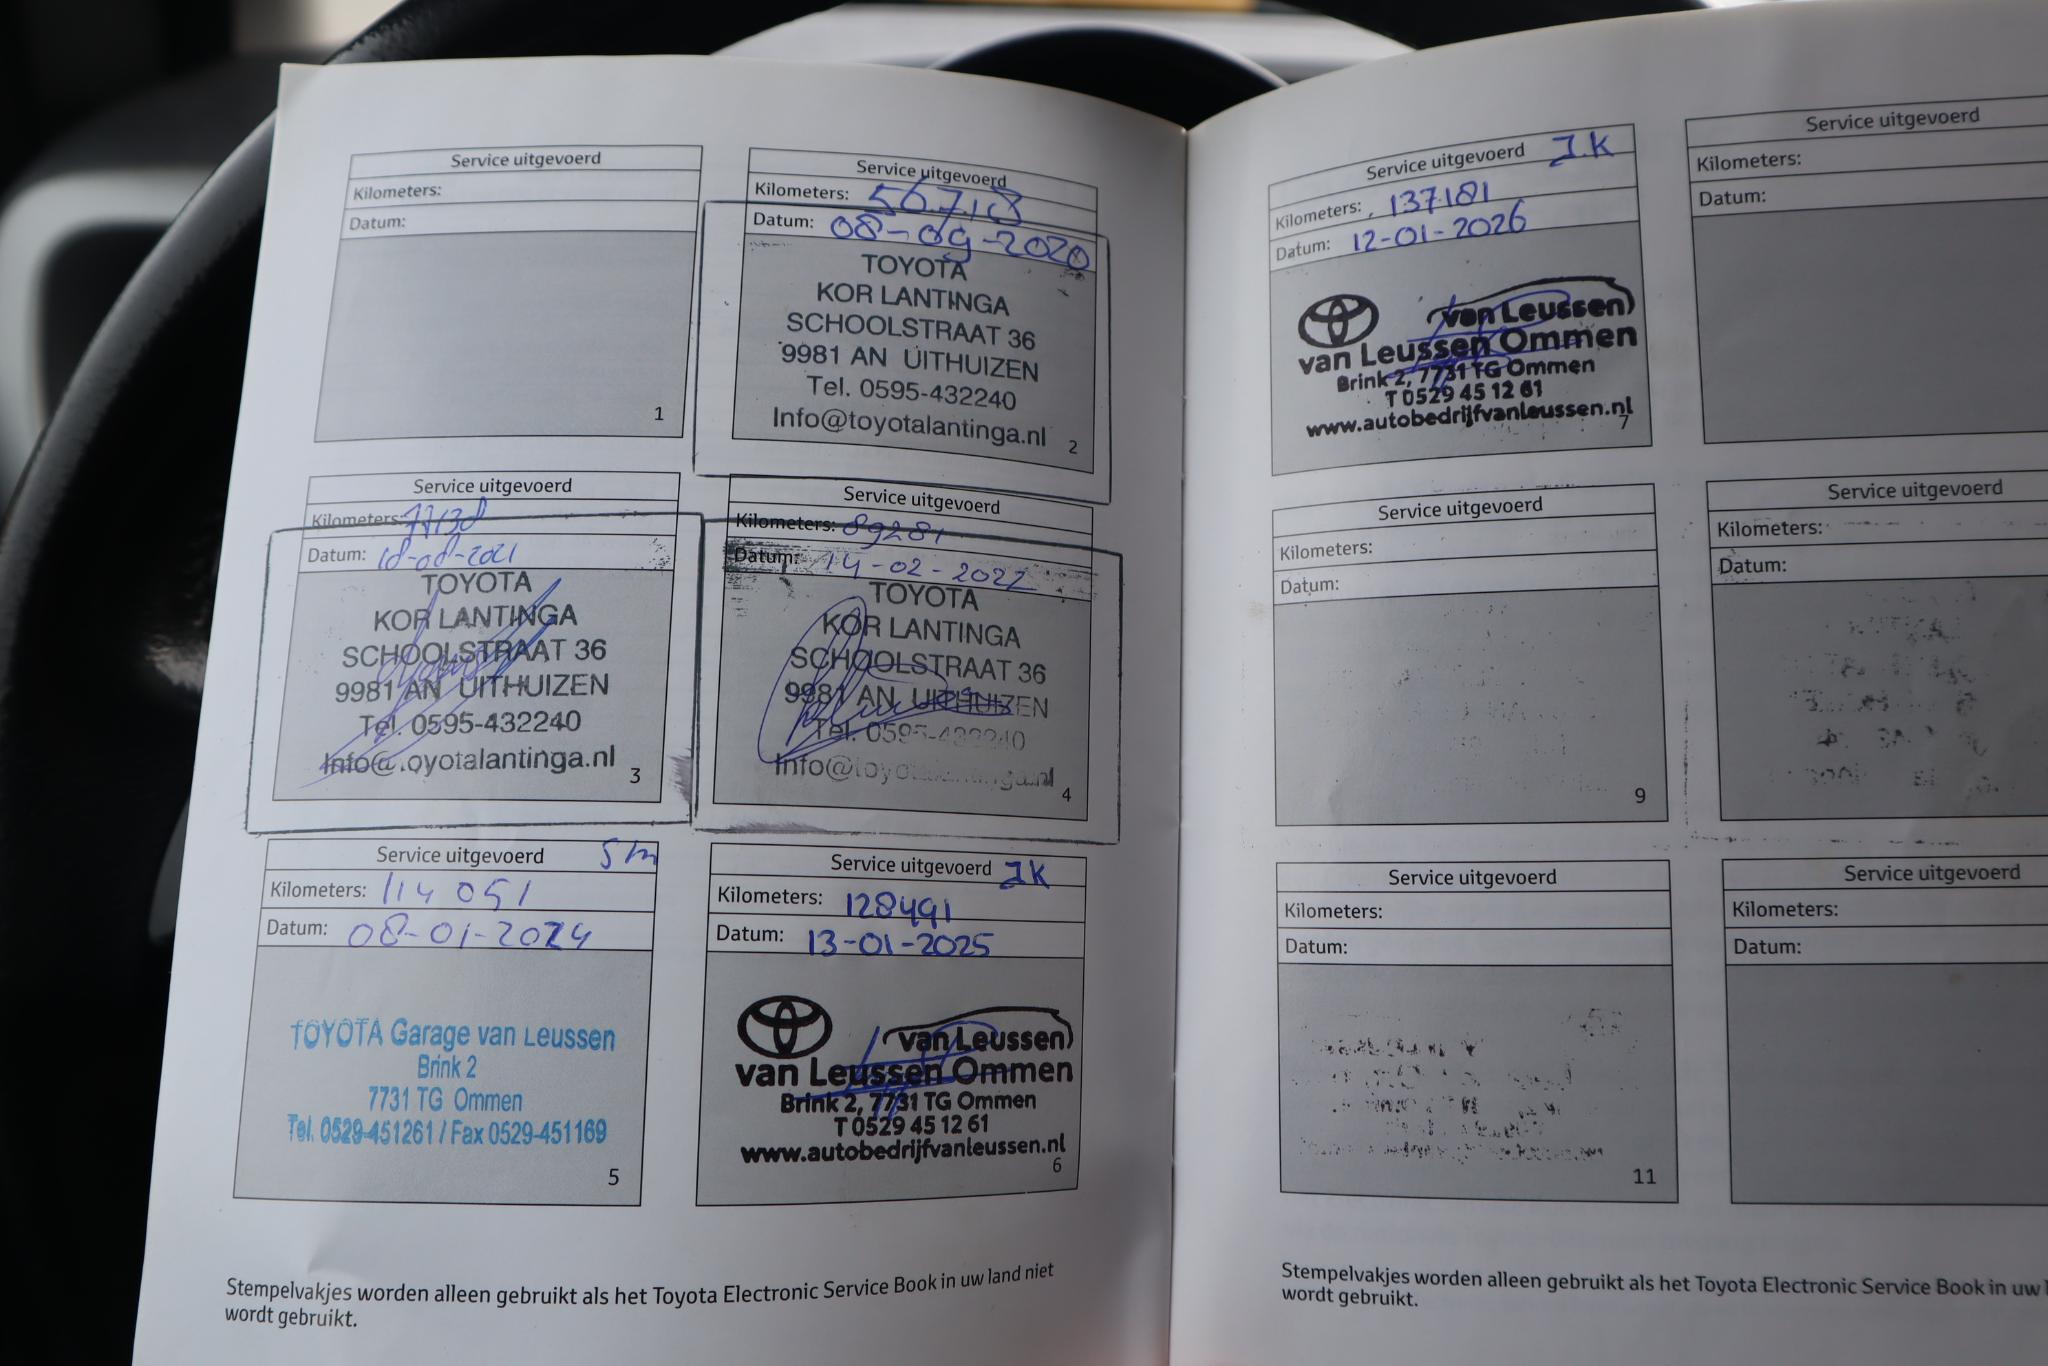 Service uitgevoerd
Kilometers:
Datum:
1
Service uitgevoerd
Kilometers: 56.718
Datum: 08-09-2020
TOYOTA
KOR LANTINGA
SCHOOLSTRAAT 36
9981 AN UITHUIZEN
Tel. 0595-432240
Info@toyotalantinga.nl
2
Service uitgevoerd
Kilometers: 77138
Datum: 10-08-2021
TOYOTA
KOR LANTINGA
SCHOOLSTRAAT 36
9981 AN UITHUIZEN
Tel. 0595-432240
Info@toyotalantinga.nl
3
Service uitgevoerd
Kilometers: 89281
Datum: 14-02-2022
TOYOTA
KOR LANTINGA
SCHOOLSTRAAT 36
9981 AN UITHUIZEN
Tel. 0595-432240
Info@toyotalantinga.nl
4
Service uitgevoerd
Kilometers: 114 051
Datum: 08-01-2024
TOYOTA Garage van Leussen
Brink 2
7731 TG Ommen
Tel. 0529-451261 / Fax 0529-451169
5
Service uitgevoerd J.K
Kilometers: 128491
Datum: 13-01-2025
van Leussen
van Leussen Ommen
Brink 2, 7731 TG Ommen
T 0529 45 12 61
www.autobedrijfvanleussen.nl
6
Stempelvakjes worden alleen gebruikt als het Toyota Electronic Service Book in uw land niet
wordt gebruikt.
Service uitgevoerd J.K
Kilometers: 137181
Datum: 12-01-2026
van Leussen
van Leussen Ommen
Brink 2, 7731 TG Ommen
T 0529 45 12 61
www.autobedrijfvanleussen.nl
7
Service uitgevoerd
Kilometers:
Datum:
Service uitgevoerd
Kilometers:
Datum:
9
Service uitgevoerd
Kilometers:
Datum:
Service uitgevoerd
Kilometers:
Datum:
11
Service uitgevoerd
Kilometers:
Datum:
Stempelvakjes worden alleen gebruikt als het Toyota Electronic Service Book in uw
wordt gebruikt.